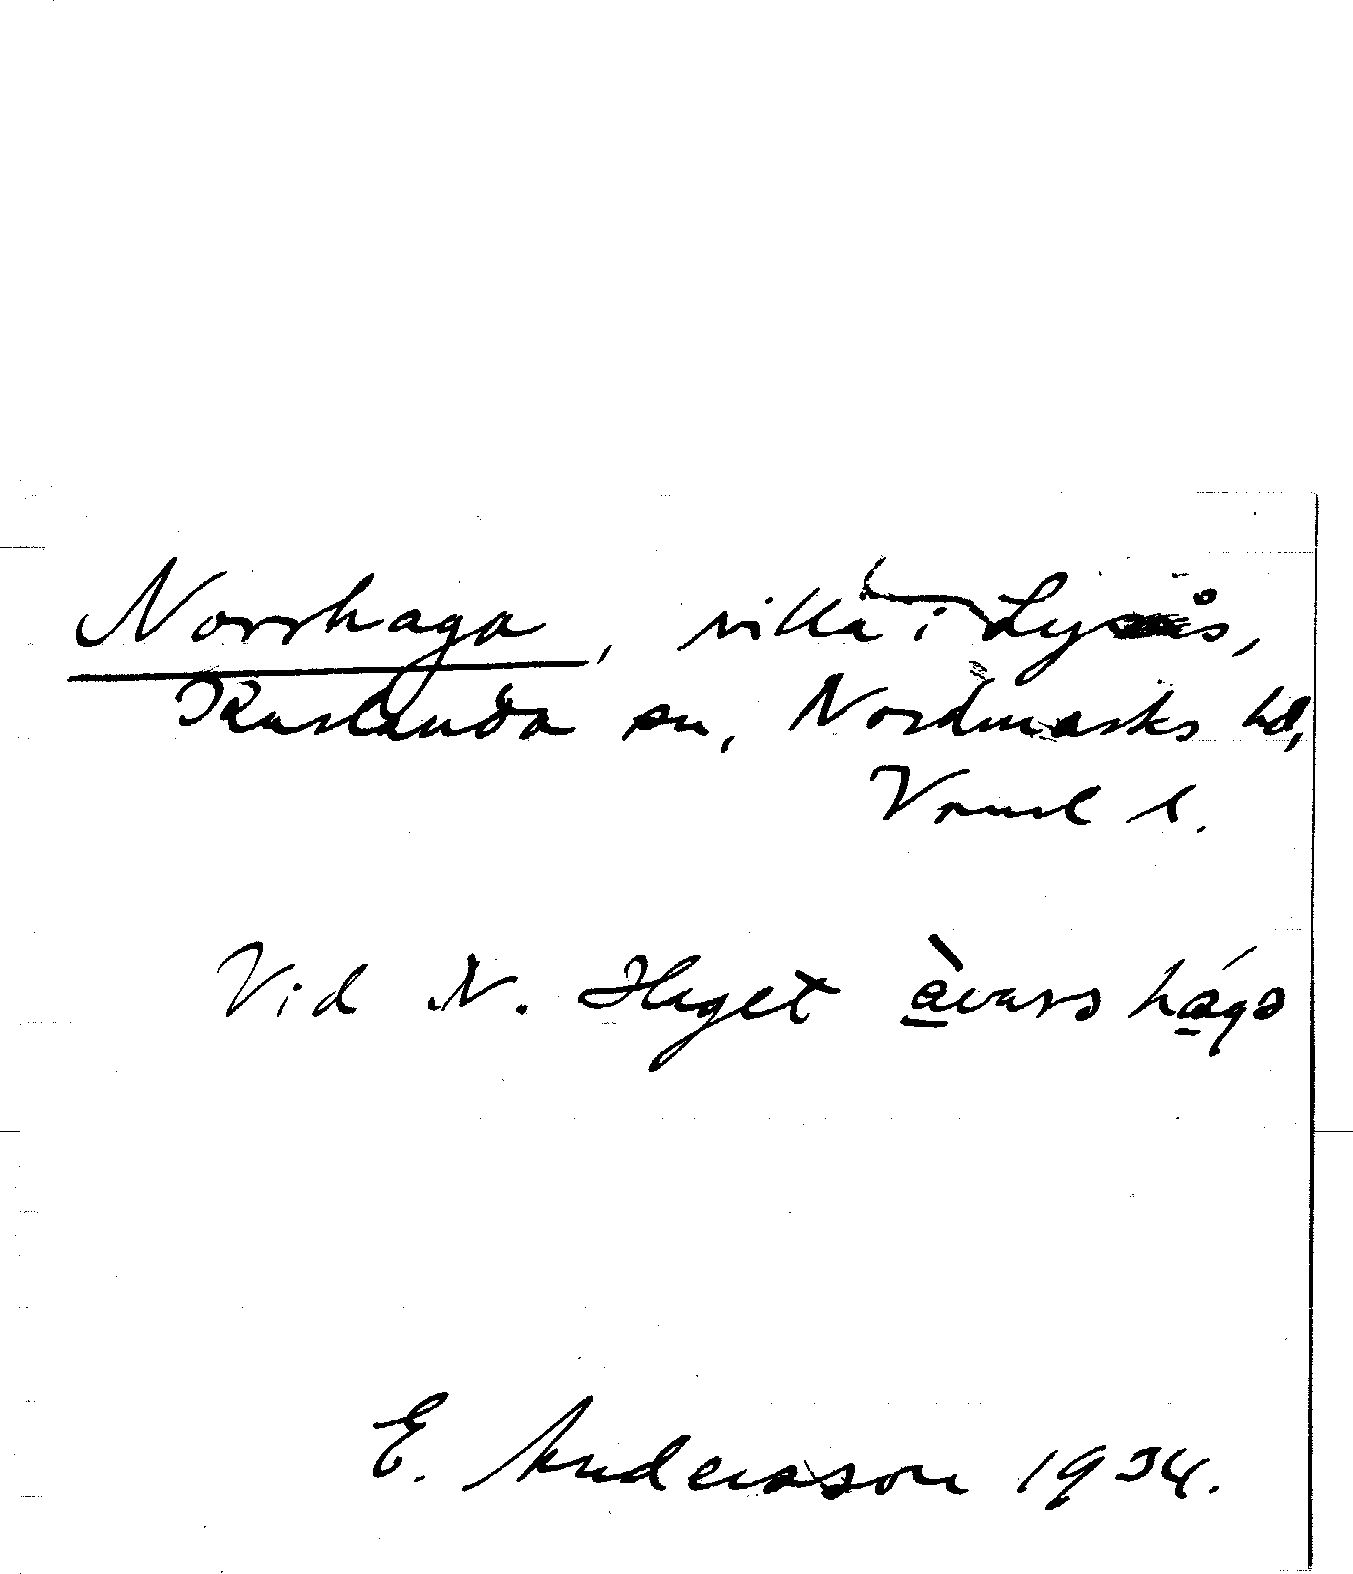 Norrhaga, villa i Lysås,
Karlanda sn, Nordmarks hd,
Vrml l.
Vid N. Haget àvarə hágə
E. Andersson 1934.